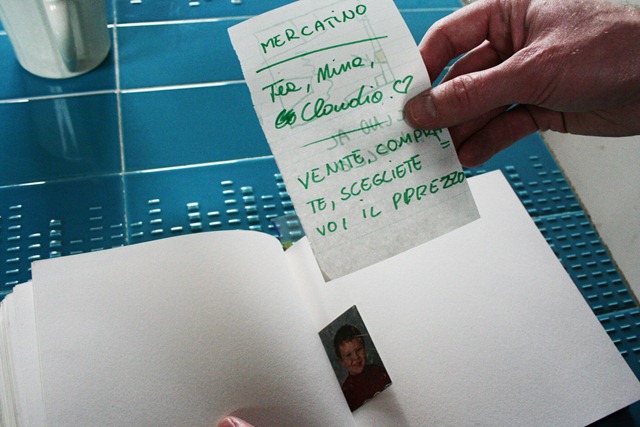 MERCATINO
Tea, Mina,
Claudio. ♡
VENITE, COMPRA=
TE, SCEGLIETE
VOI IL PPREZZO